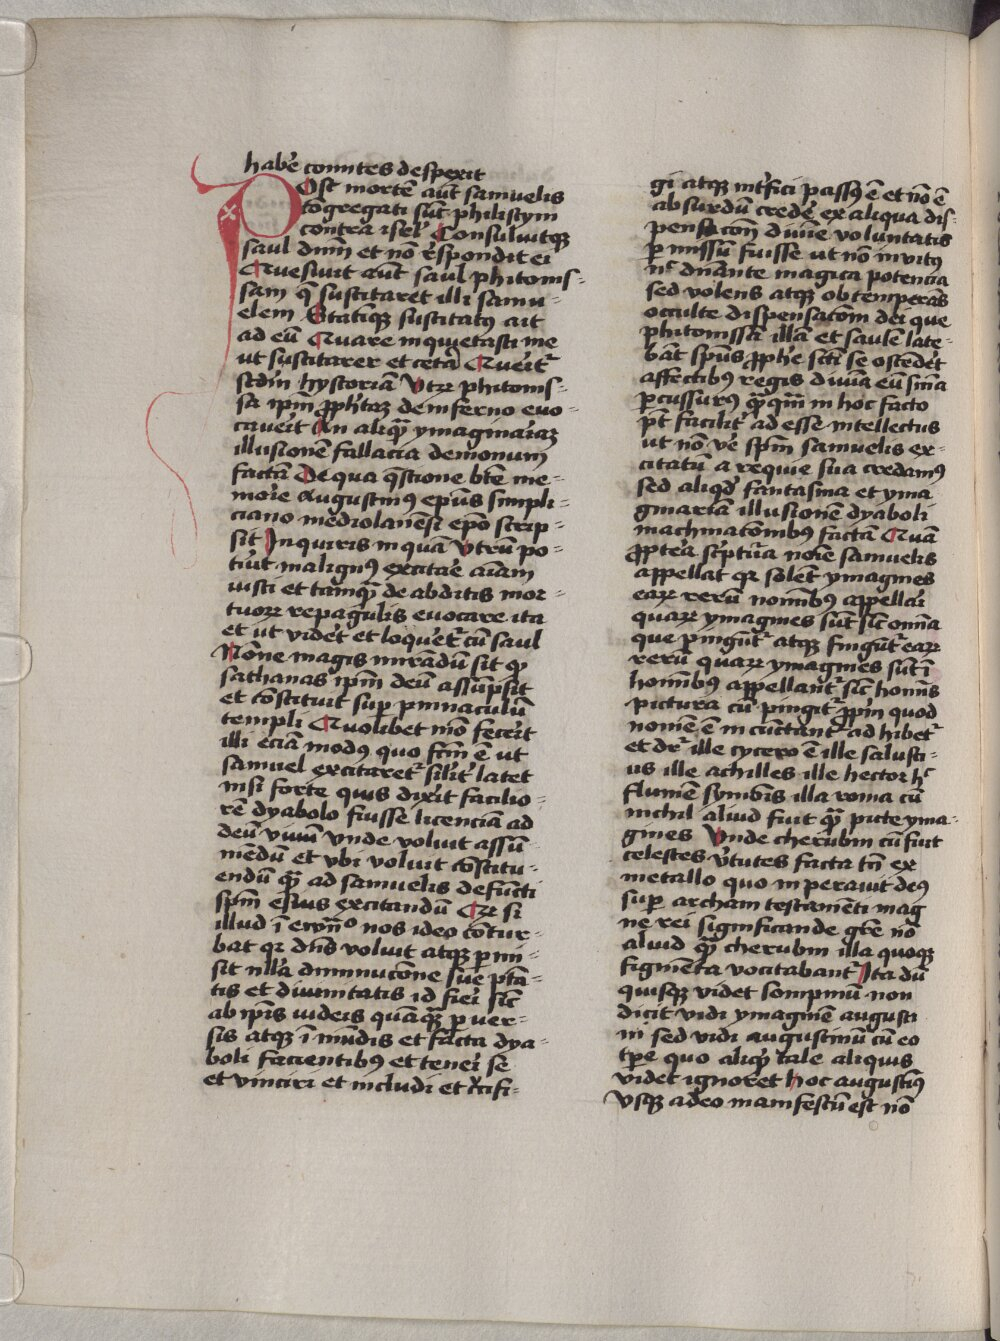 habē comites despexit
Ost mortē aūt samuelis
congregati sūt philistym
contra isrl̄ Consuluitqꝫ
saul dn̄m et nō rn̄spondit ei
Quesiuit aūt saul phitonis-
sam q̄ suscitaret illi samu-
elem Statimqꝫ suscitatꝰ ait
ad eū Quare inquietasti me
ut suscitarer et cetā Querit̄
scdm̄ hystoriā Vtrꝫ phitonis-
sa ip̄m ꝓph̄taꝫ de inferno euo-
cauerit An aliqꝫ̄ ymaginariaꝫ
illusionē fallacia demonum
factā De qua q̄stione bt̄e me-
morie augustinꝰ ep̄us simpli-
ciano mediolanēsi ep̄o scrip-
sit Inquiris in quā vtrū po-
tiut malignꝰ excitare aīam
iusti et tamqꝫ̄ de abditis mor-
tuoꝝ repagulis euocare ita
et ut videt̄ et loqueret̄ cū saul
Nōne magis mirādū sit qꝫ
sathanas ip̄m deū assūpsit
et cōstituit sup̄ pinnaculū
templi Quolibet mō fecerit
illi eciā modꝰ quo fcm̄ ē ut
samuel excitaret̄ silit̄ latet
nisi forte quis dixerit facilio-
rē dyabolo fuisse licenciā ad
deū viuū vnde voluit assū-
mēdū et vbi voluit cōstitu-
endū qꝫ̄ ad samuelis defūcti
spm̄ eius excitandū Qꝫ si
illud ī ewn̄ᵒ nos ideo cōtur-
bat qꝛ dn̄s voluit atqꝫ ꝑmi-
sit nll̄a diminucōne sue ptā-
tis et diuinitatis id fieri sic̄
ab ip̄is iudeis quāqꝫ̄ ꝑuer-
sis atqꝫ īmūdis et facta dya-
boli facientibꝰ et teneri se
et vinciri et includi et crucifi-
gi atqꝫ int̄fici passꝰ ē et nō ē
absurdū crede᷑ ex aliqua dis-
pensacōn̄ diuīe voluntatis
ꝑmissū fuisse ut nō inuitꝰ
nc̄ dn̄ante magica potencia
sed volens atqꝫ obtemperās
occulte dispensacōm dei que
phitonissā illā et saulē late-
bāt spūs ꝓph̄e scī se ostēdēt
affectibꝰ regis diuīa eū snīa
ꝑcussurꝰ qꝫ̄qm̄ in hoc facto
pt̄ facilit̄ adesse intellectus
ut nō ve᷑ spm̄ samuelis ex-
citatū a requie sua credamꝰ
sed aliqd̄ fantasma et yma
ginariā illusionē dyaboli
machinacōnibꝰ factā Quā
ꝓpt̄ea sc̄ptura noīe samuelis
appellat qꝛ solēt ymagines
eaꝝ rerū nominibꝰ appellari
quaꝝ ymagines sūt sic̄ omnia
que pingūt̄ atqꝫ fingūt̄ eaꝝ
rerū quaꝝ ymagines sūt ī
hominibꝰ appellant̄ sic̄ homīs
pictura cū pingit̄ ꝓpriū quod
nomē ē incūctant̄ adhibet̄
et dr̄ ille cycero ē ille salusti-
us ille achilles ille hector hͨ
flumē symōis illa roma cū
nichil aliud sint qꝫ̄ picte yma-
gines Unde cherubin cū sint
celestes v̄tutes facta tn̄ ex
metallo quo imperauit deꝰ
sup̄ archam testamēti mag
ne rei significande gr̄e nō
aliud qꝫ̄ cherubin illa quoqꝫ
figmēta vocitabant̄ Ita dū
quisqꝫ videt sompniū non
dicit vidi ymaginē augusti
ni sed vidi augustinū cū eo
tp̄re quo aliqꝫ tale aliquis
videt ignoret hoc augustīꝰ
Vsqꝫ adeo manifestū est nō